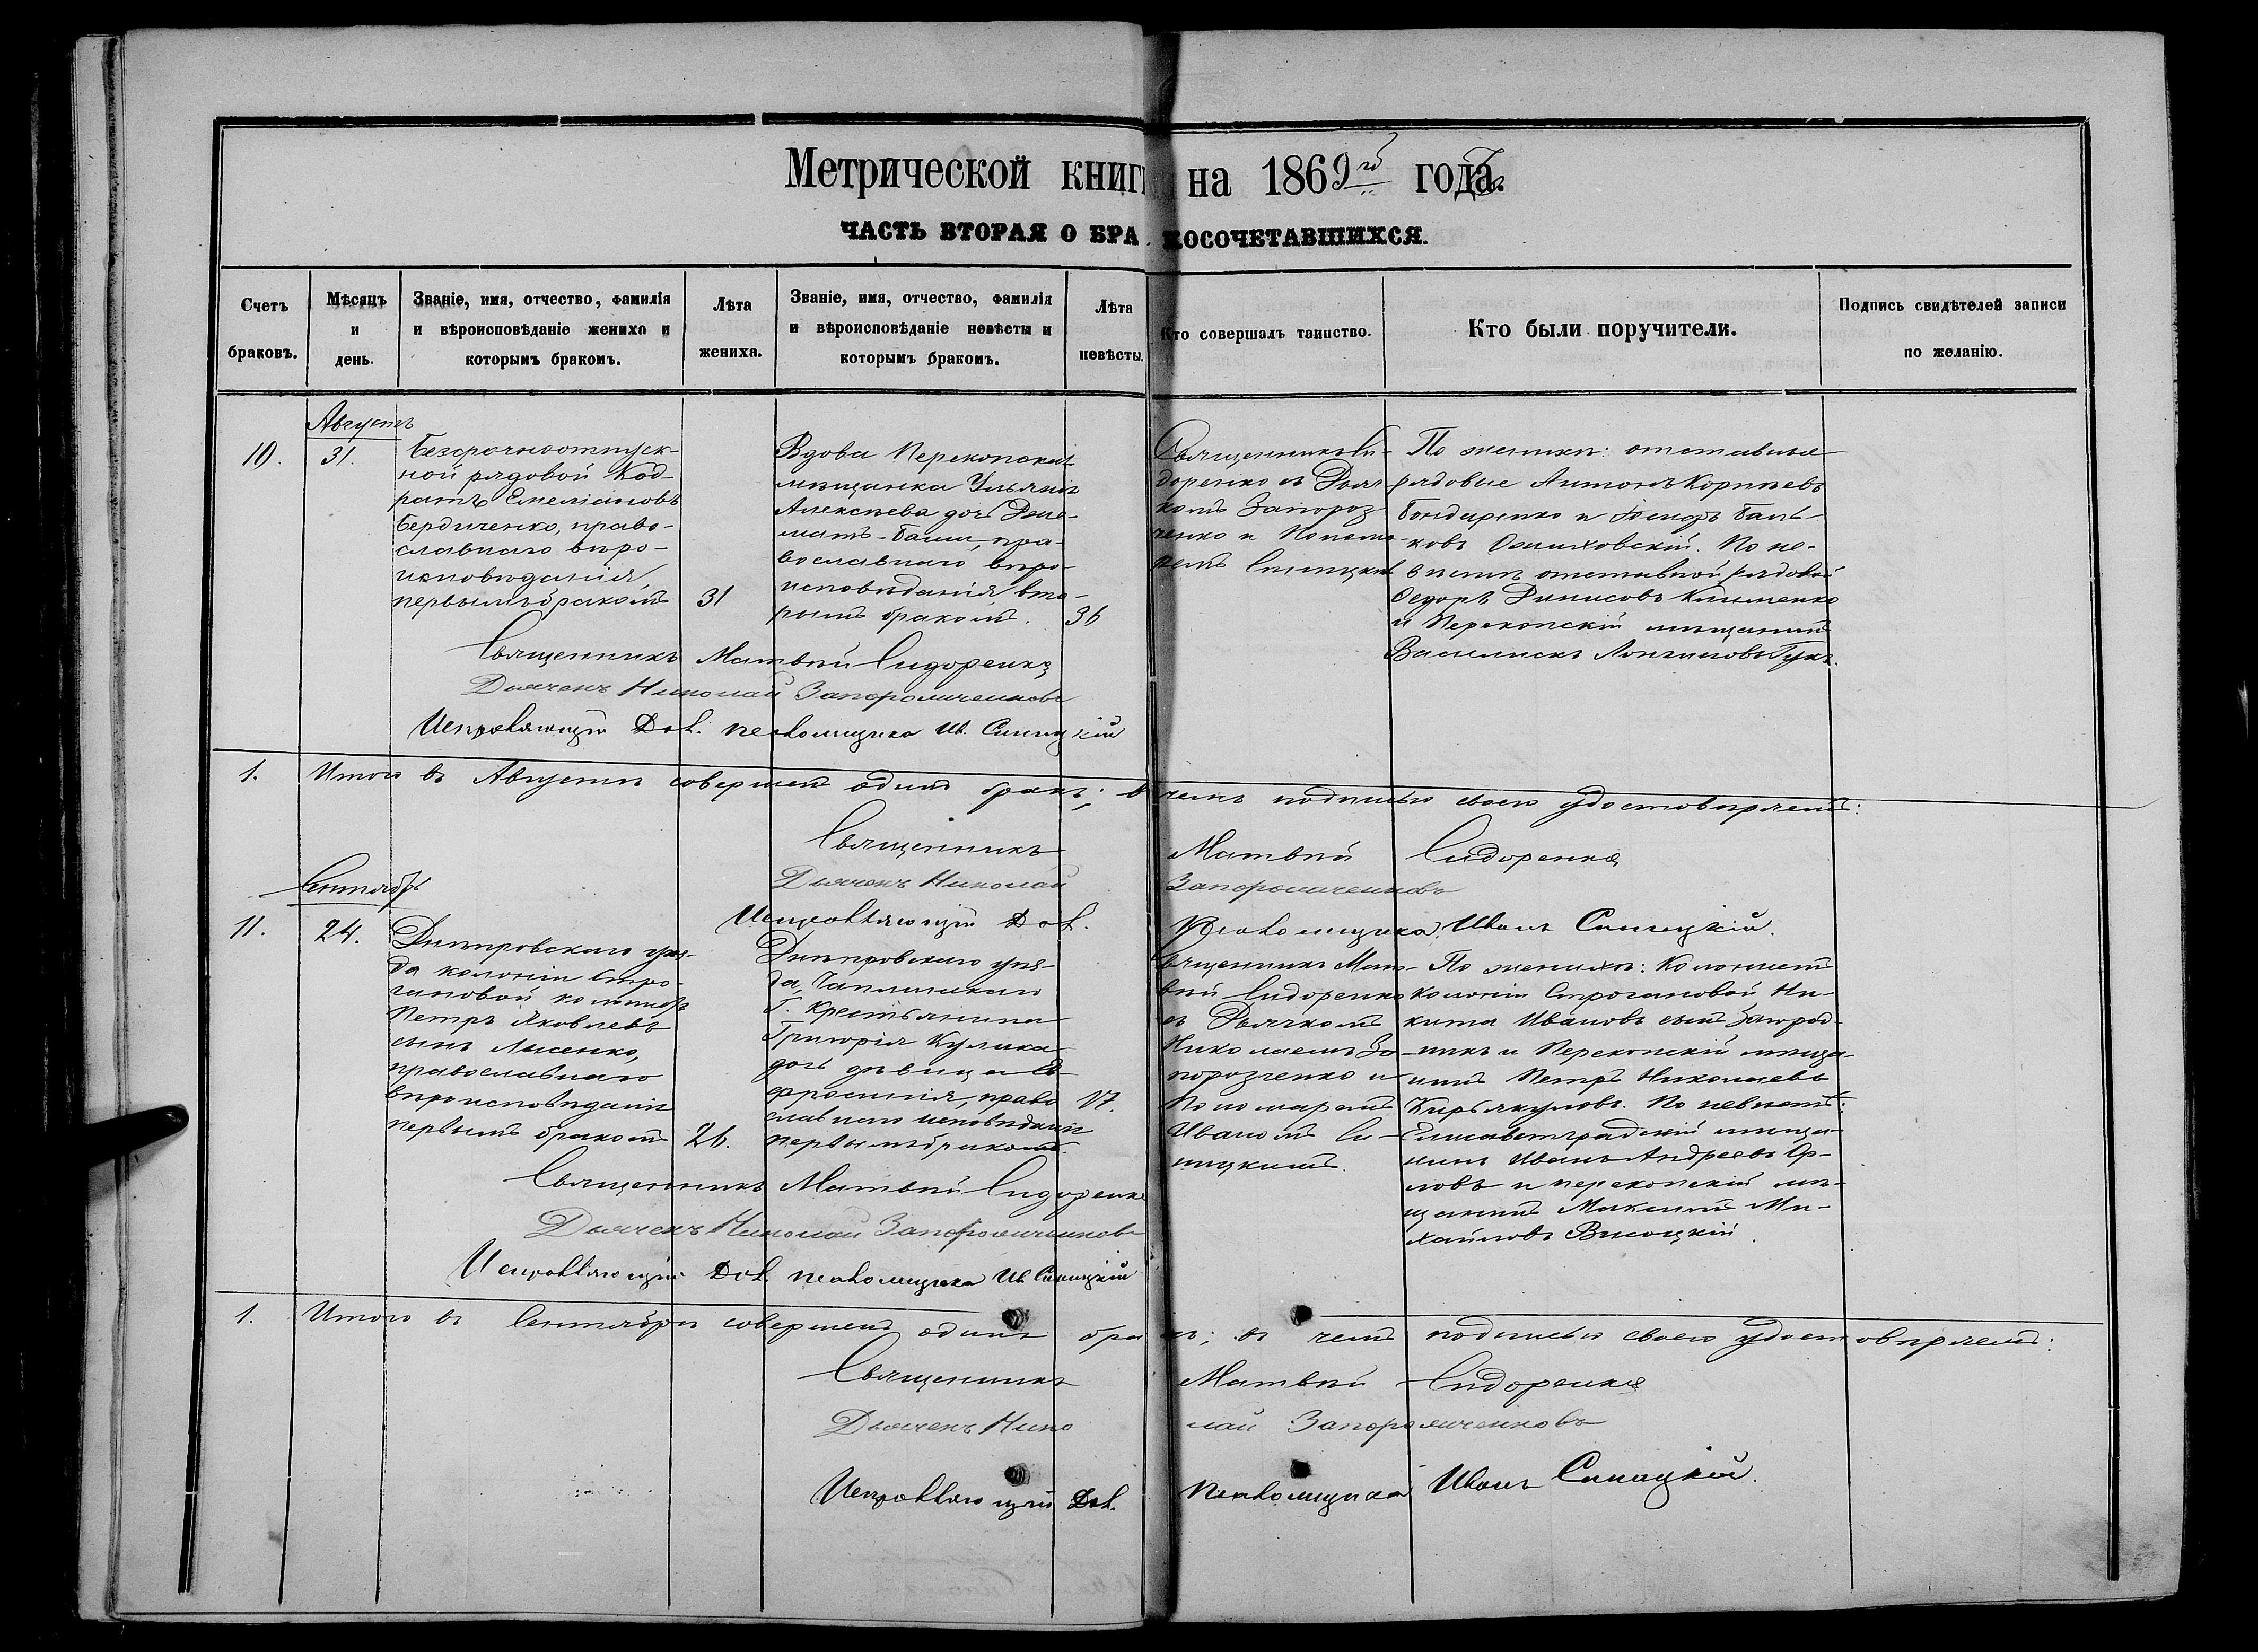 Метрической книги на 1869го года.
ЧАСТЬ ВТОРАЯ О БРАКОСОЧЕТАВШИХСЯ.
Счетъ браковъ.
Мѣсяцъ и день.
Званіе, имя, отчество, фамилія
и вѣроисповѣданіе жениха и
которымъ бракомъ.
Лѣта жениха.
Званіе, имя, отчество, фамилія
и вѣроисповѣданіе невѣсты и
которымъ бракомъ.
Лѣта невѣсты.
Кто совершалъ таинство.
Кто были поручители.
Подпись свидѣтелей записи
по желанію.
Августъ
10.
31.
Безсрочноотпуск-
ной рядовой Код-
ратъ Емеліановъ
Бердиченко, право-
славнаго вѣро-
исповѣданія,
первымъ бракомъ
31
Вдова Перекопская
мѣщанка Ульянія
Алексѣева дочь
православнаго вѣро-
исповѣданія вто-
рымъ бракомъ.
36
Священникъ Си-
доренко съ Дьяч-
комъ Запороз-
ченко и Понома-
ремъ Синицкимъ
По женихѣ: отставные
рядовые Антонъ Корнѣевъ
Бондаренко и
По не-
вѣстѣ отставной рядовой
Ѳедоръ Динисовъ Клименко
и Перекопскій мѣщанинъ
Василискъ Лонгиновъ Гукъ.
Священникъ Матвѣй Сидоренко
Дьячекъ Николай Запорожченковъ
Исправляющій Дол. псаломщика Ив. Синицкій
1. Итого въ Августѣ совершенъ одинъ бракъ; въ чемъ подписью своею удостовѣряемъ:
Священникъ Матвѣй Сидоренко
Дьячекъ Николай Запорожченковъ
Исправляющій Дол. Псаломщика Иванъ Синицкій.
Сентябрь
11.
24.
Днѣпровскаго уѣз-
да колоніи Стро-
гановой колонистъ
Петръ Яковлевъ
сынъ Лысенко,
православнаго
вѣроисповѣданія
первымъ бракомъ
26.
Днѣпровскаго уѣз-
да, Чаплинскаго
Г. Крестьянина
Григорія Кулика
дочь дѣвица Ев-
фросинія, право
славнаго исповѣданія
первымъ бракомъ.
17.
Священникъ Мат-
вѣй Сидоренко
съ Дьячкомъ
Николаемъ За-
порозченко и
Пономаремъ
Иваномъ Си-
ницкимъ.
По женихѣ: Колонистъ
колоніи Строгановой Ни-
кита Ивановъ сынъ Загород-
никъ и Перекопскій мѣща-
нинъ Петръ Николаевъ
Кирьякуловъ. По невѣстѣ:
Елисаветградскій мѣща-
нинъ Иванъ Андреевъ Ор-
ловъ и перекопскій мѣ-
щанинъ Максимъ Ми-
хайловъ Височкій.
Священникъ Матвѣй Сидоренко
Дьячекъ Николай Запорожченковъ
Исправляющій Дол. псаломщика Ив Синицкій
1. Итого въ Сентябрѣ совершенъ одинъ бракъ; въ чемъ подписью своею удостовѣряемъ:
Священникъ Матвѣй Сидоренко
Дьячекъ Николай Запорожченковъ
Исправляющій Дол. Псаломщика Иванъ Синицкій.